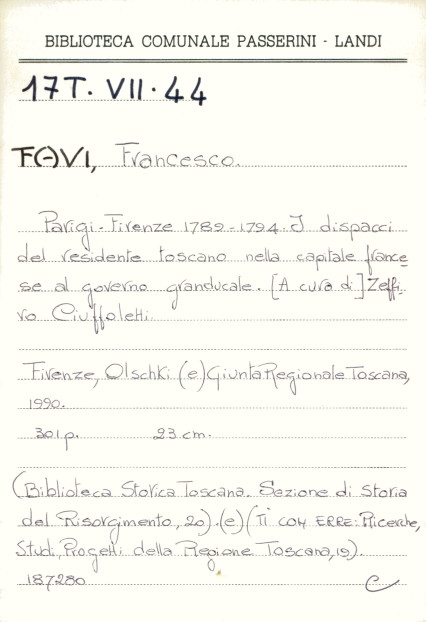 BIBLIOTECA COMUNALE PASSERINI - LANDI
17T. VII. 44
FAVI, Francesco.
Parigi-Firenze 1789-1794. I dispacci
del residente toscano nella capitale france
se al governo granducale. [A cura di] Zeffi-
ro Ciuffoletti.
Firenze, Olschki (e) Giunta Regionale Toscana,
1990.
301 p. 23 cm.
(Biblioteca Storica Toscana. Sezione di Storia
del Risorgimento, 20). (e) (Ti con ERRE: Ricerche,
Studi, Progetti della Regione Toscana, 19).
187280 C